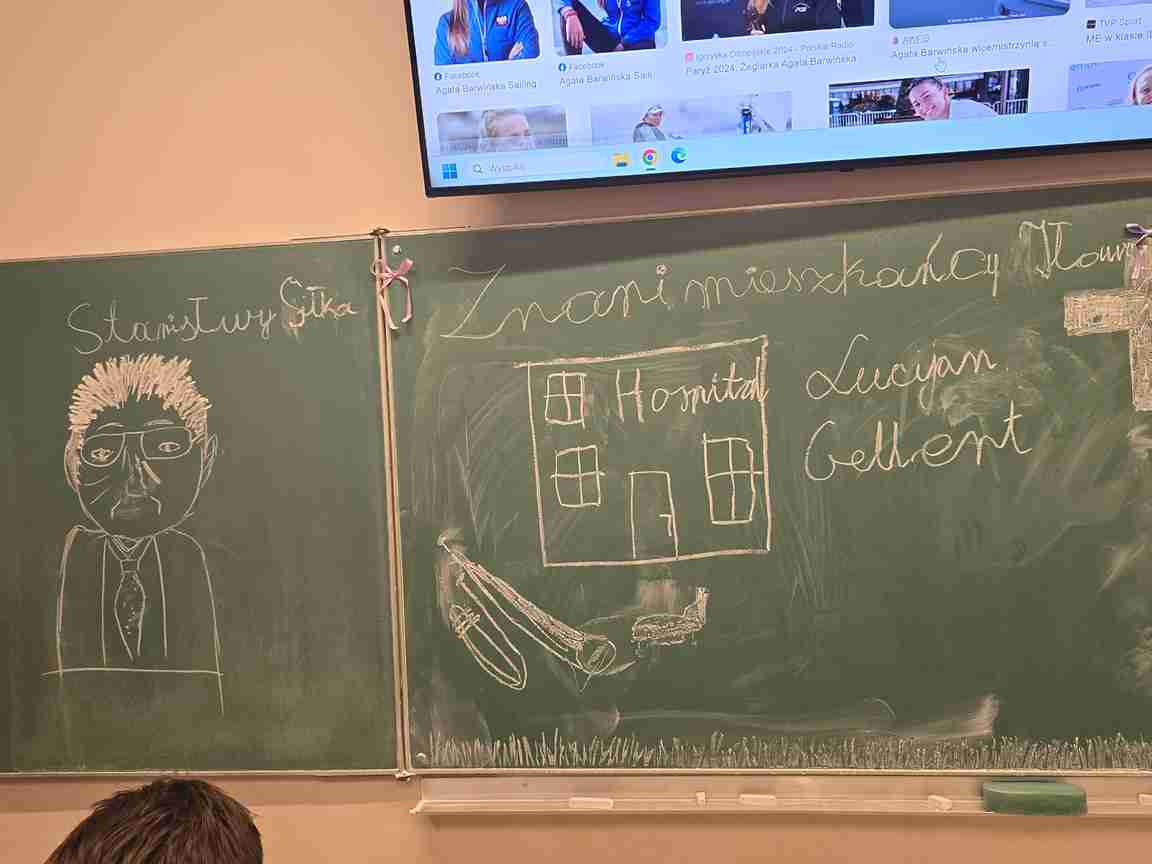 Facebook
Agata Barwińska Sailing
Facebook
Agata Barwińska Saili
Igrzyska Olimpijskie 2024 - Polskie Radio
Paryż 2024. Żeglarka Agata Barwińska
AWFiS
Agata Barwińska wicemistrzynią s...
TVP Sport
ME w klasie IL
Wyszukaj
Stanisławy Sitka
Znani mieszkańcy Iławy
Hospital
Lucyjan
Gellert